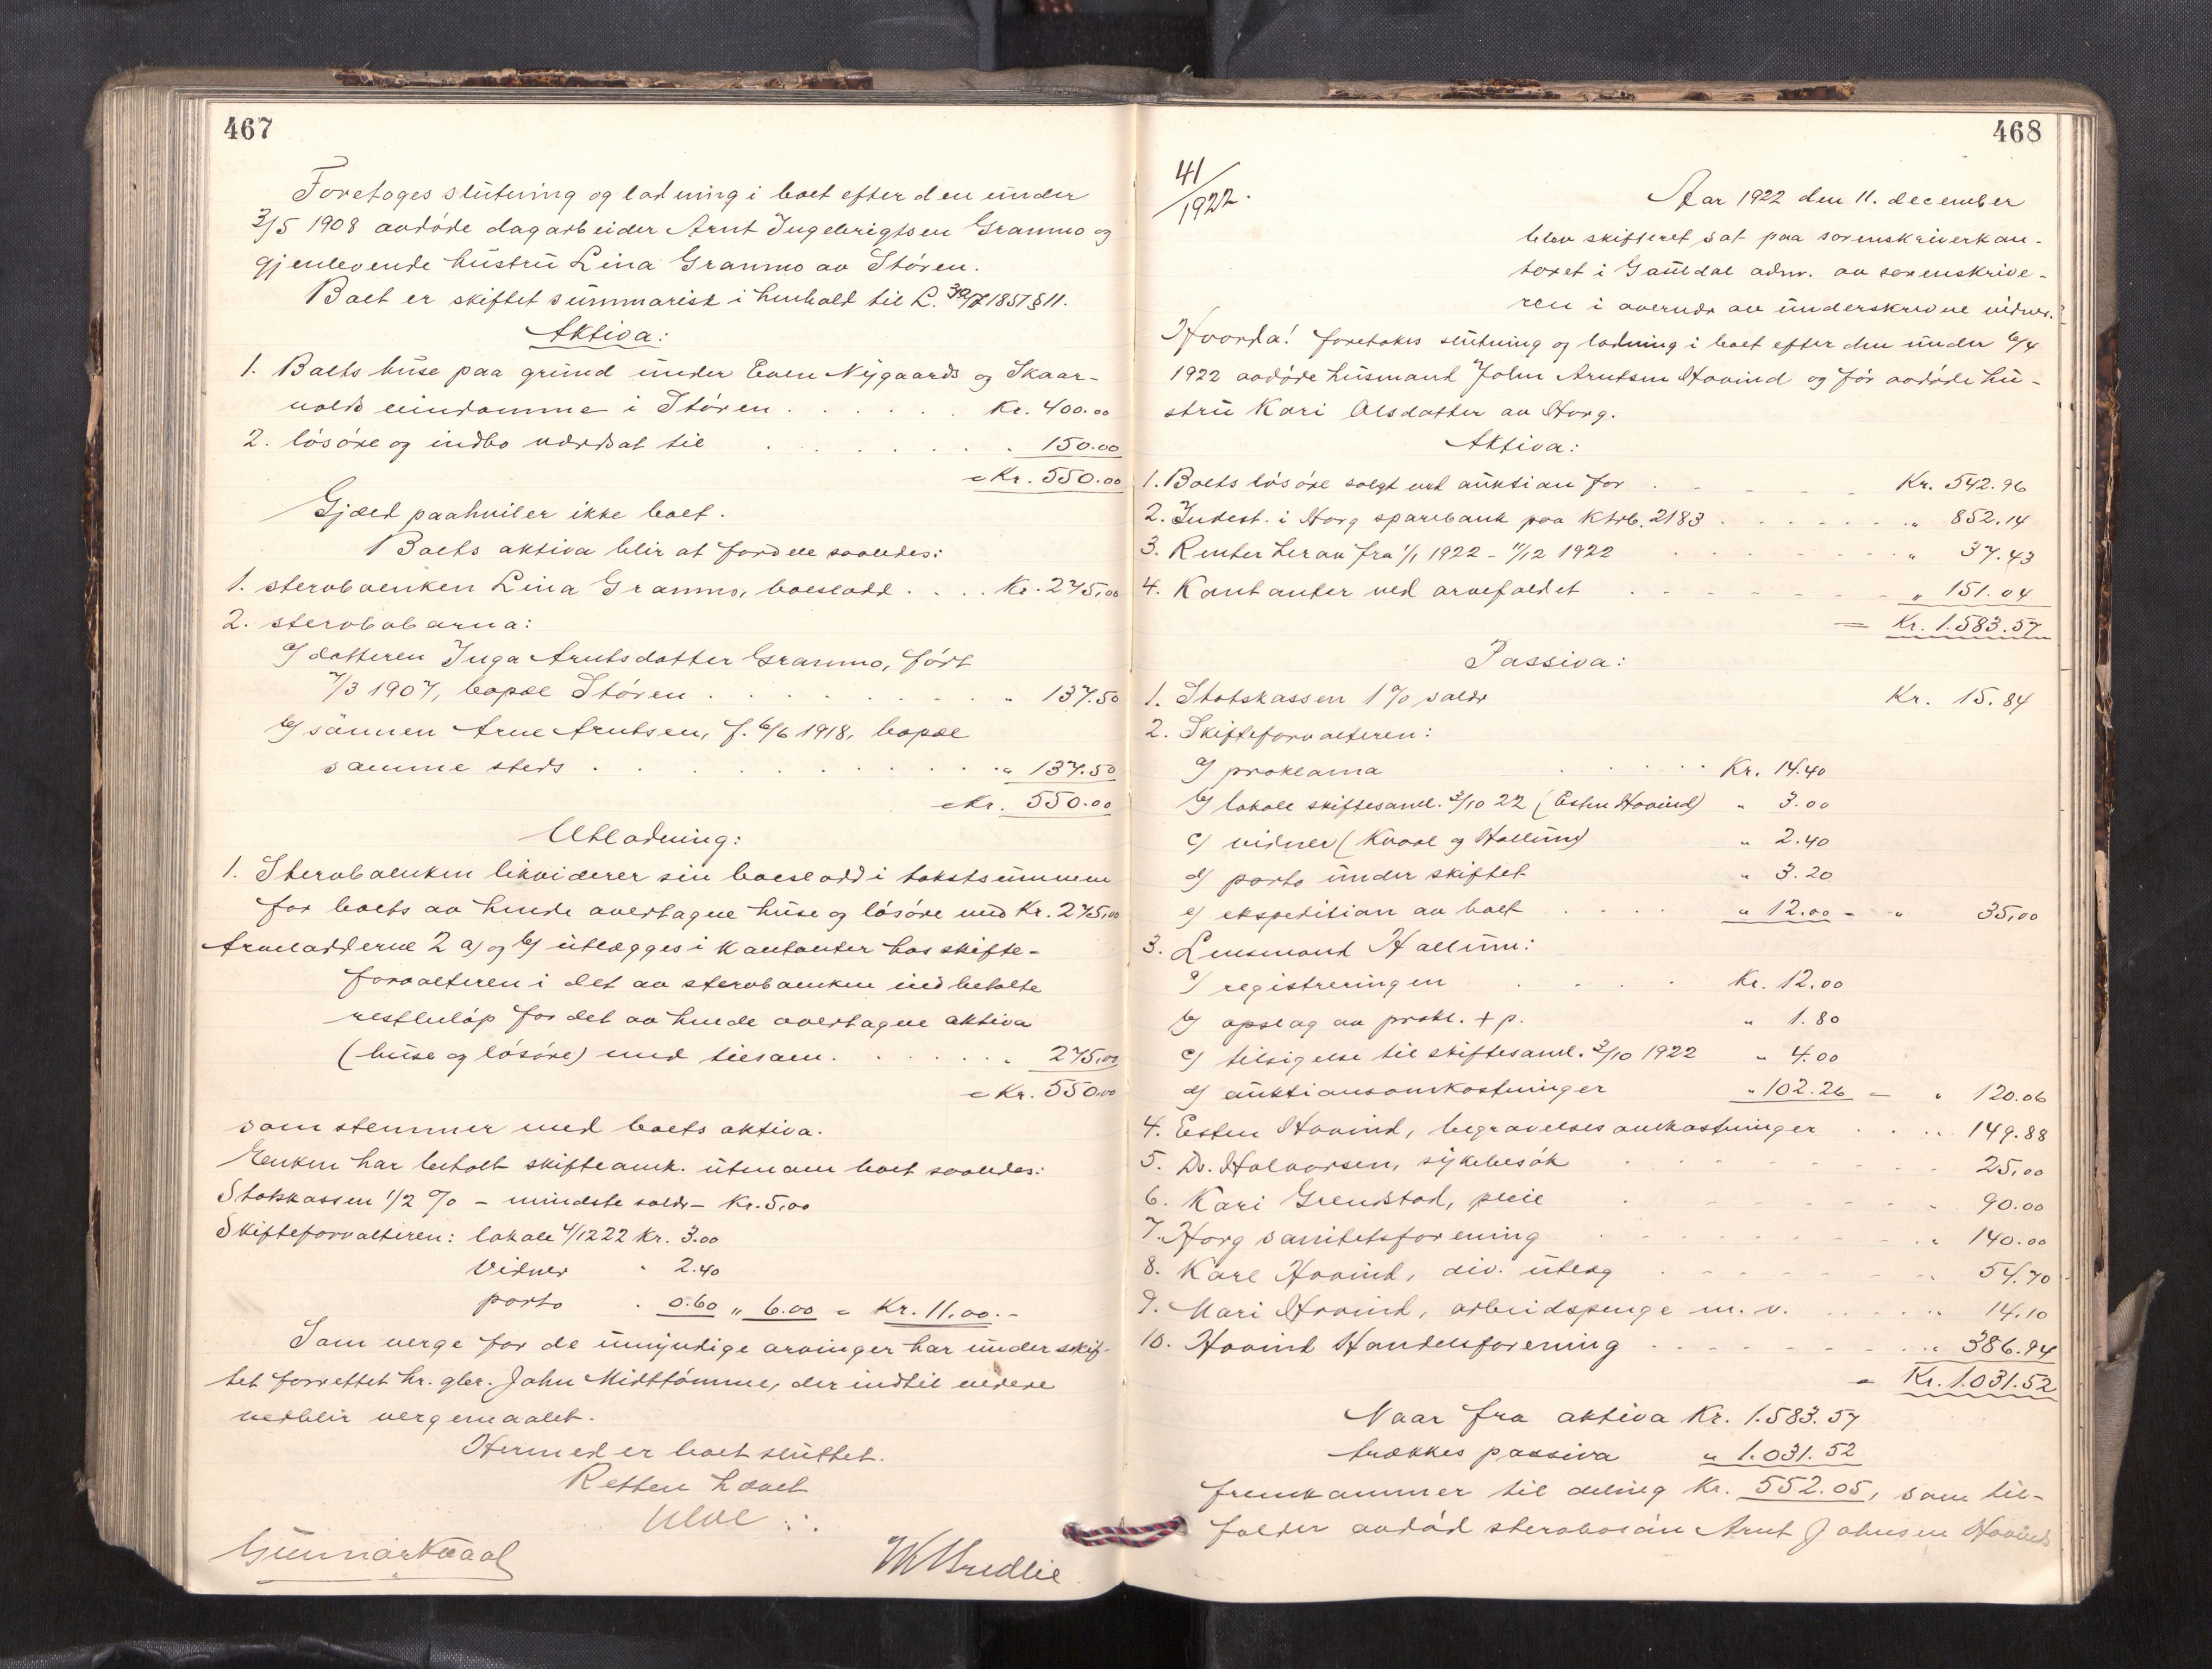 467
Foretoges slutning og lodning i boet efter den under
3/5 1908 avdøde dagarbeider Arnt Ingebrigtsen Granmo og
gjenlevende hustru Lina Granmo av Støren.
Boet er skiftet summarisk i henhold til L. 30/7 1851 § 11.
Aktiva:
1. Boets huse paa grund under Even Nygaards og Skaar-
volds eiendomme i Støren . . . . . . Kr. 400.00
2. løsøre og indbo værdsat til . . . . . . " 150.00
= Kr. 550.00
Gjæld paahviler ikke boet.
Boets aktiva blir at fordele saaledes:
1. stervboenken Lina Granmo, boeslodd . . . . Kr. 275,00
2. stervbobarna:
a/ datteren Inga Arntsdatter Granmo, født
7/3 1907, bopæl Støren . . . . . . . . " 137.50
b/ sønnen Arne Arntsen, f. 6/6 1918, bopæl
samme steds . . . . . . . . . . " 137.50
= Kr. 550.00
Utlodning:
1. Stervboenken likviderer sin boeslodd i takstsummen
for boets av hende overtagne huse og løsøre med Kr. 275,00
Arvelodderne 2 a) og b) utlægges i kontanter hos skifte-
forvalteren i det av stervboenken indbetalte
restbeløp for det av hende overtagne aktiva
(huse og løsøre) med tilsam. . . . . . . " 275,00
= Kr. 550.00
som stemmer med boets aktiva.
Enken har betalt skifteomk. utenom boet saaledes:
Statskassen 1/2 % - mindste saldo - Kr. 5,00
Skifteforvalteren: lokale 4/12 22 Kr. 3.00
Vidner " 2.40
porto " 0.60 " 6.00 = Kr. 11.00.-
Som verge for de umyndige arvinger har under skif-
tet forrettet hr. gbr. John Midttømme, der indtil videre
vedblir vergemaalet.
Hermed er boet sluttet.
Retten hævet
Gunnar Kvaal
468
41/1922.
Aar 1922 den 11. december
blev skifteret sat paa sorenskriverkon-
toret i Gauldal adm. av sorenskrive-
ren i overvær av underskrevne vidner.
Hvorda! foretokes slutning og lodning i boet efter den under 6/4
1922 avdøde husmand John Arntsen Hovind og før avdøde hu-
stru Kari Olsdatter av Horg.
Aktiva:
1. Boets løsøre solgt ved auktion for . . . . . Kr. 542.96
2. Indest. i Horg sparebank paa Ktrb. 2183 . . . . . . " 852.14
3. Renter herav fra 1/1 1922 - 11/12 1922 . . . . . . " 37.43
4. Kontanter ved arvefaldet . . . . . . " 151.04
= Kr. 1.583.57
Passiva:
1. Statskassen 1 % saldo Kr. 15.84
2. Skifteforvalteren:
a/ proklama . . . . . Kr. 14.40
b/ lokale skiftesaml. 3/10 22 (Esten Hovind) " 3.00
c/ vidner (Kvaal og Hallum) " 2.40
d/ porto under skiftet " 3.20
e/ ekspedition av boet . . . . " 12.00 = " 35,00
3. Lensmand Hallum:
a/ registreringen . . . . Kr. 12.00
b/ opslag av prokl. + p. " 1.80
c/ tilsigelse til skiftesaml. 3/10 1922 " 4.00
d/ auktionsomkostninger " 102.26 = " 120.06
4. Esten Hovind, begravelsesomkostninger . . . " 149.88
5. Dr. Halvorsen, sykebesøk . . . . . . 25,00
6. Kari Grenstad, pleie . . . . . . " 90.00
7. Horg sanitetsforening . . . . . . " 140.00
8. Karl Hovind, div. utlæg . . . . . . " 54.70
9. Mari Hovind, arbeidspenge m. v. . . . . . " 14.10
10. Hovind Handelsforening . . . . . . " 386.94
= Kr. 1.031.52
Naar fra aktiva Kr. 1.583.57
trækkes passiva " 1.031.52
fremkommer til deling Kr. 552.05, som til-
falder avdød stervbosøn Arnt Johnsen Hovinds